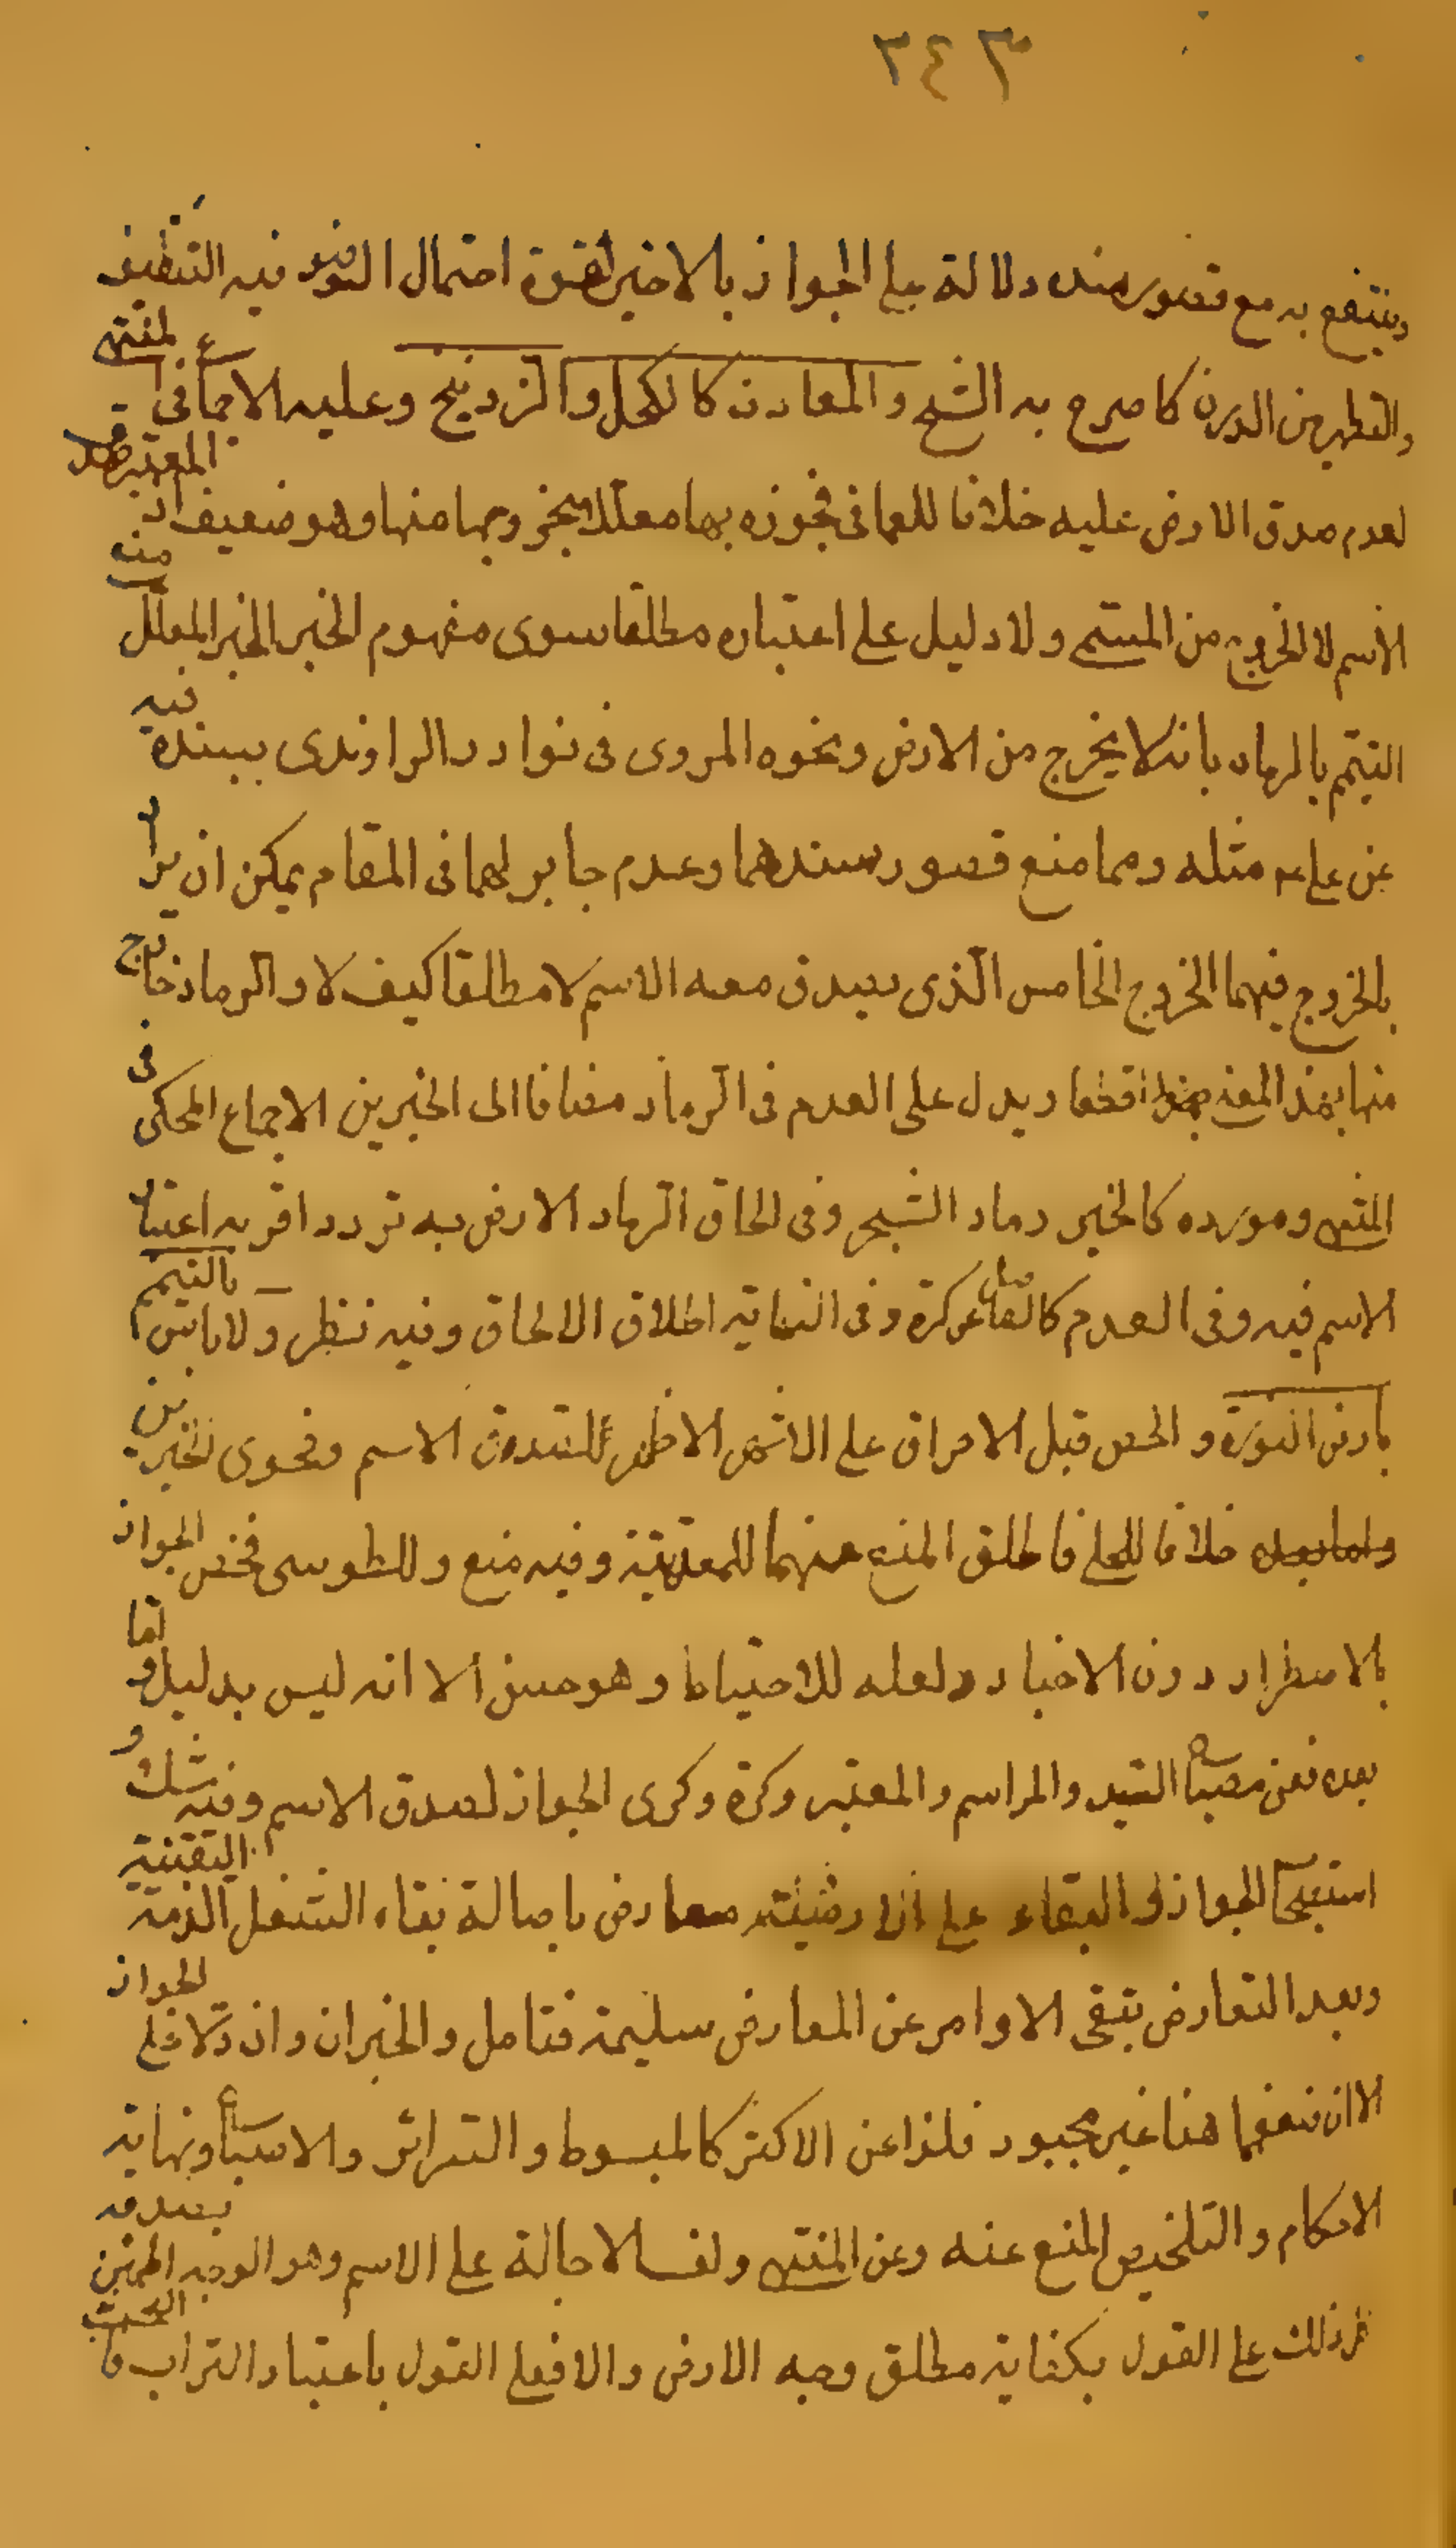 ٣٤٣
وينتفع به مع قصور سنده دلالة على الجواز بالاخير لقوة احتمال التوضو فيه التنظيف
والتطهير من الدرن كما صرح به الشيخ والمعادن كالكحل والزرنيخ وعليه الاجماع في المنتهى
لعدم صدق الارض عليه خلافا للعماني فجوزه بها معللا بخروجها منها وهو ضعيف اذ المعتبر صدق
الاسم لا الخروج من المسمى ولا دليل على اعتباره مطلقا سوى مفهوم الخبر الخبر المعلل منه
التيمم بالرماد بانه لا يخرج من الارض ونحوه المروى في نوادر الراوندى بسنده فيه
عن على ع مثله ومما منع قصور سندهما وعدم جابر لهما في المقام يمكن ان يراد
بالخروج فيهما الخروج الخاص الذى يصدق معه الاسم لا مطلقا كيف لا والرماد خارج
منها بهذا المعنى قطعا ويدل على العدم في الرماد مضافا الى الخبرين الاجماع المحكى في
المنتهى ومورده كالخبر رماد الشجر وفى الحاق الرماد الارض به تردد اقربه اعتبار
الاسم فيه وفى العدم كالفاضل عن كرة وفى النهاية اطلاق الالحاق وفيه نظر ولا باس بالتيمم
بارض النورة و الجص قبل الاحراق على الاشهر الاظهر للصدق الاسم وفحوى الخبرين
واما بعده خلافا للحلى فاطلق المنع عنهما للمعدنية وفيه منع وللطوسى فخص الجواز
بالاضطرار دون الاختيار ولعله للاحتياط وهو حسن الا انه ليس بدليل واما
بعده فعن مصباح السيد والمراسم والمعتبر وكرة وكرى الجواز لصدق الاسم وفيه شك و
استصحاب الجواز او البقاء على ارضيته معارض باصالة بقاء الشغل الذمة اليقينية
وبعد التعارض يتبقى الاوامر عن المعارض سليمة فتامل والخبران وان دلا على الجواز
الا ان ضعفهما هنا غير مجبور فلذا عن الاكثر كالمبسوط والسرائر والاصباح ونهاية
الاحكام والتلخيص المنع عنه وعن المنتهى ولف الاحالة على الاسم وهو الوجه المتين بصدقه
ذلك على القول بكفاية مطلق وجه الارض والا فعلى القول باعتبار التراب البحت